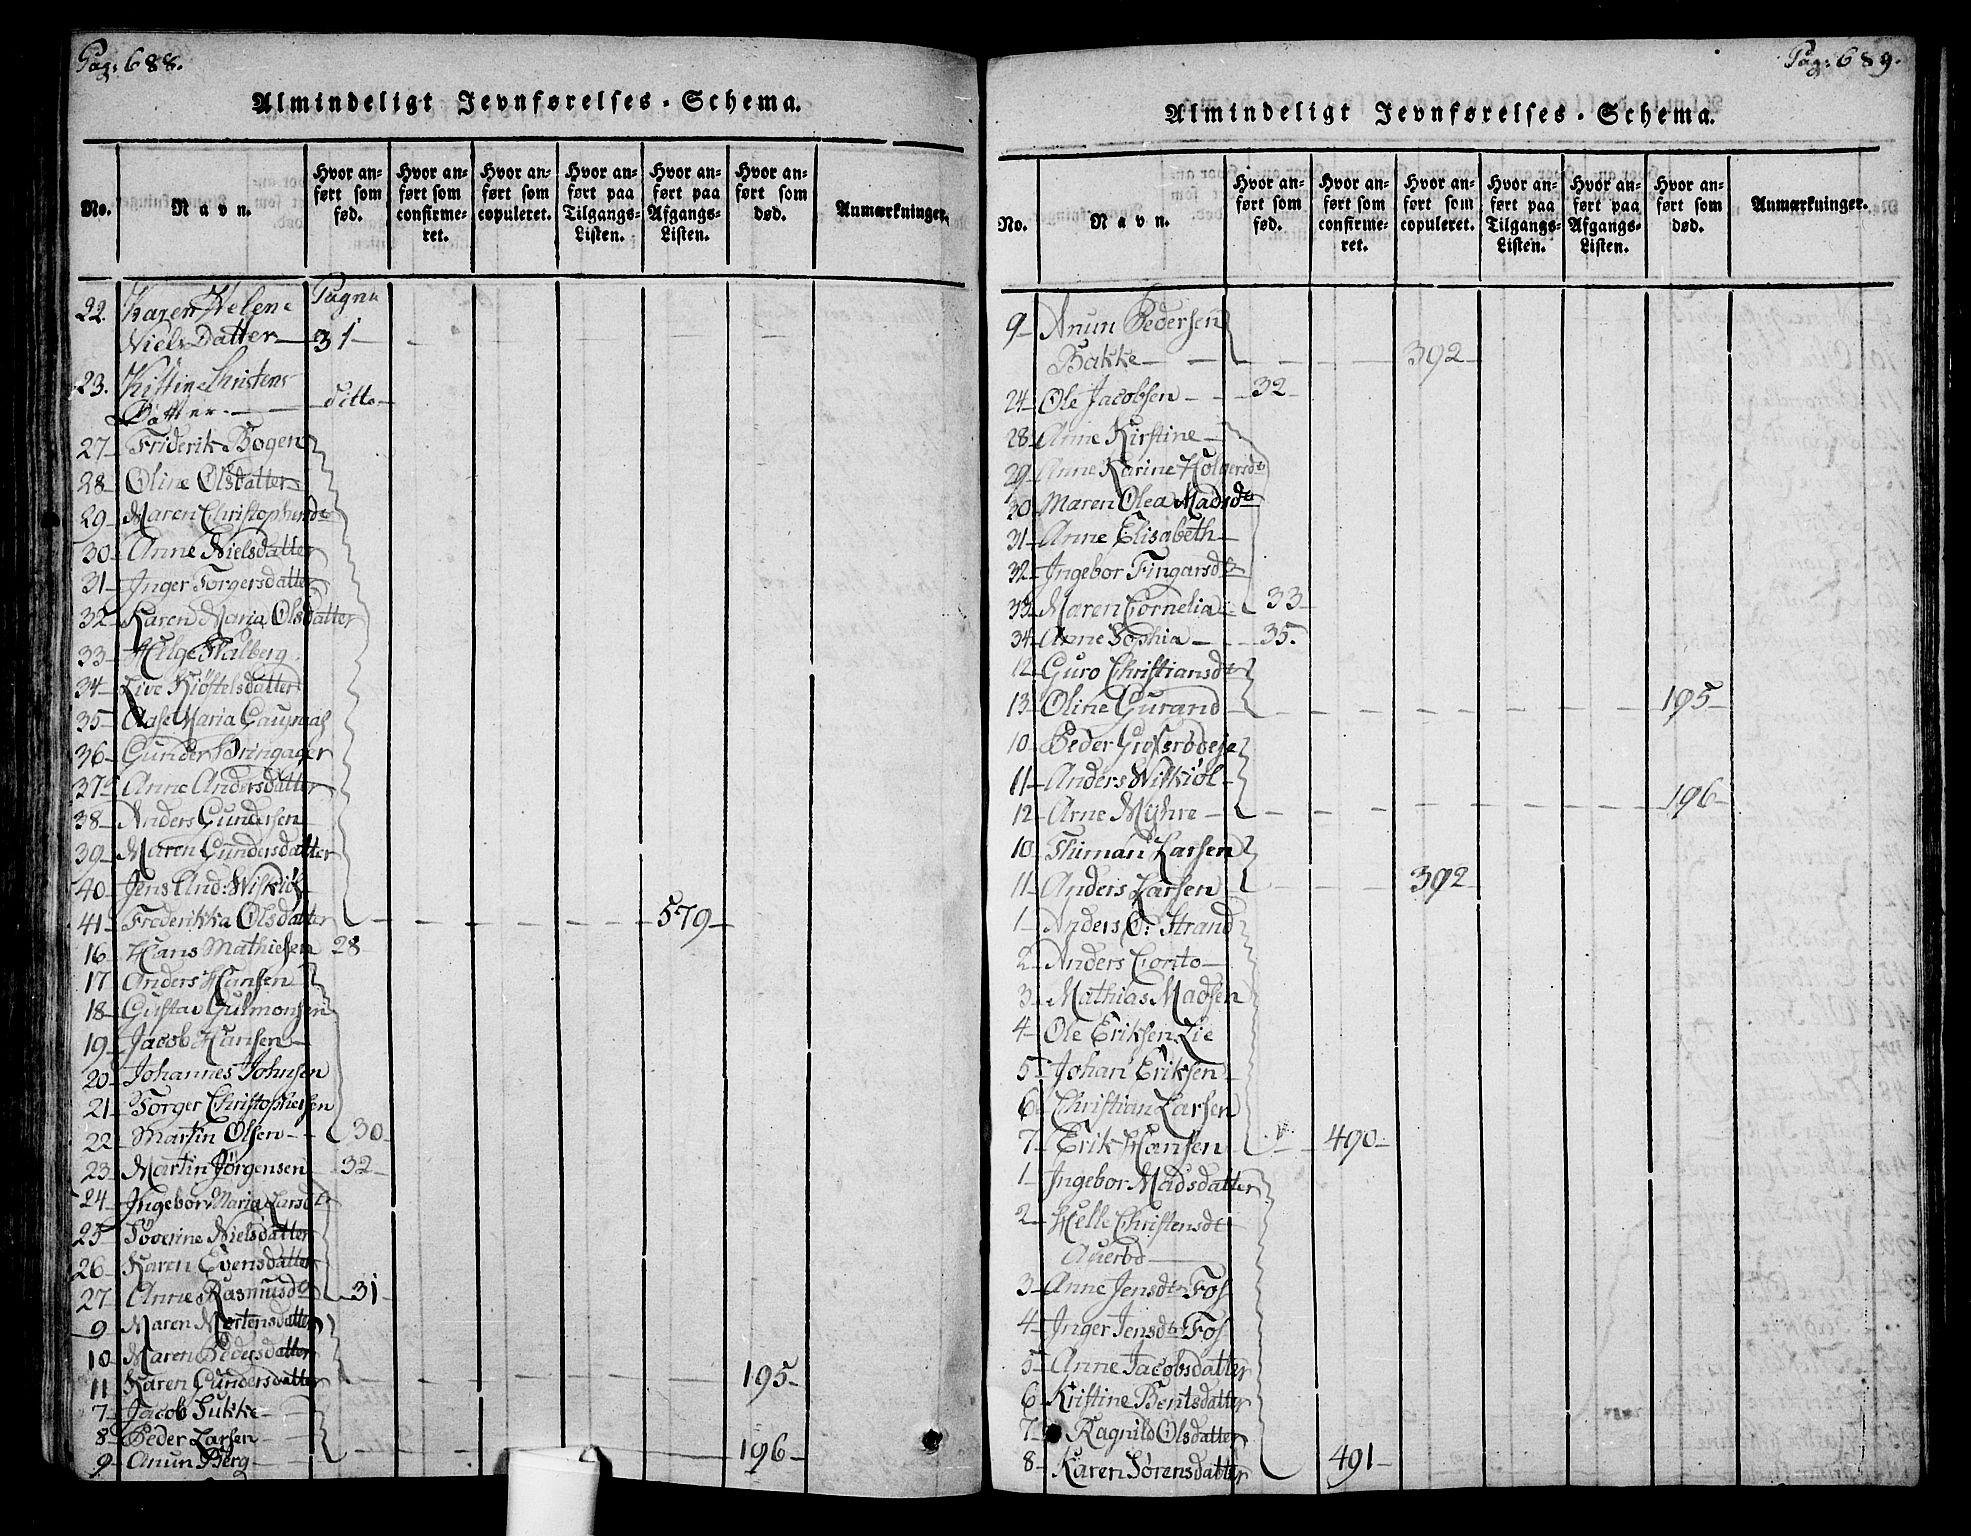 Pag: 688.
Almindeligt Jevnførelses-Schema.
No.
Navn.
Hvor anført som fød.
Hvor anført som confirmeret.
Hvor anført som copuleret.
Hvor anført paa Tilgangs-Listen.
Hvor anført paa Afgangs-Listen.
Hvor anført som død.
Anmærkninger.
22. Karen Helene Pagna
Niels Datter 31
23. Kistine Christens
Datter ditto
27 Friderik Bogen
28 Oline Olsdatter
29 Maren
30 Anne Nielsdatter
31 Inger Torgersdatter
32 Karen Maria Olsdatter
33 Helge Thalberg
34 Live Kiøstelsdatter
35 Aase Maria
36 Gunder
37 Anne Andersdatter
38 Anders Gundersen
39 Maren Gundersdatter
40 Jens And: Wiskiøl
41 Frederikka Olsdatter 579
16 Hans Mathiesen 28
17 Anders Hansen
18 Gustav Gulmonsen
19 Jacob Hansen
20 Johannes Johnsen
21 Torger Christophersen
22 Martin Olsen 30
23 Martin Jørgensen 32
24 Ingebor Maria Larsdtr
25 Søverine Nielsdatter
26 Karen Evensdatter
27 Anne Rasmusd 31
9 Maren Mortensdatter
10 Maren Pedersdatter
11 Karen Gundersdatter 195
7 Jacob Sukke
8 Peder Larsen
9 Anun Berg 196
Pag: 689.
Almindeligt Jevnførelses-Schema.
No.
Navn.
Hvor anført som fød.
Hvor anført som confirmeret.
Hvor anført som copuleret.
Hvor anført paa Tilgangs-Listen.
Hvor anført paa Afgangs-Listen.
Hvor anført som død.
Anmærkninger.
9 Anun Pedersen
Bakke 392
24 Ole Jacobsen 32
28 Anne Kirstine
29 Anne Karine Holgersdt
30 Maren Olea Madsdtr
31 Anne Elisabeth
32 Ingebor Fingarsdtr
33 Maren Cornelia 33
34 Anne Sophia 35.
12 Guro Christiansdtr
13 Oline Gurand 195
10 Peder
11 Anders Wiskiøl
12 Arne Myhre 196
10 Thiman Larsen
11 Anders Larsen 392
1 Anders O: Strand
2 Anders
3 Mathias Madsen
4 Ole Eriksen Lie
5 Johan Eriksen
6 Christian Larsen
7 Erik Hansen 490
1 Ingebor Madsdatter
2 Helle Christensdt
Auerød
3 Anne Jensdtr Fos
4 Inger Jensdtr Fos
5 Anne Jacobsdatter
6 Kristine Bentsdatter
7 Ragnild Olsdatter
8 Karen Sørensdatter 491